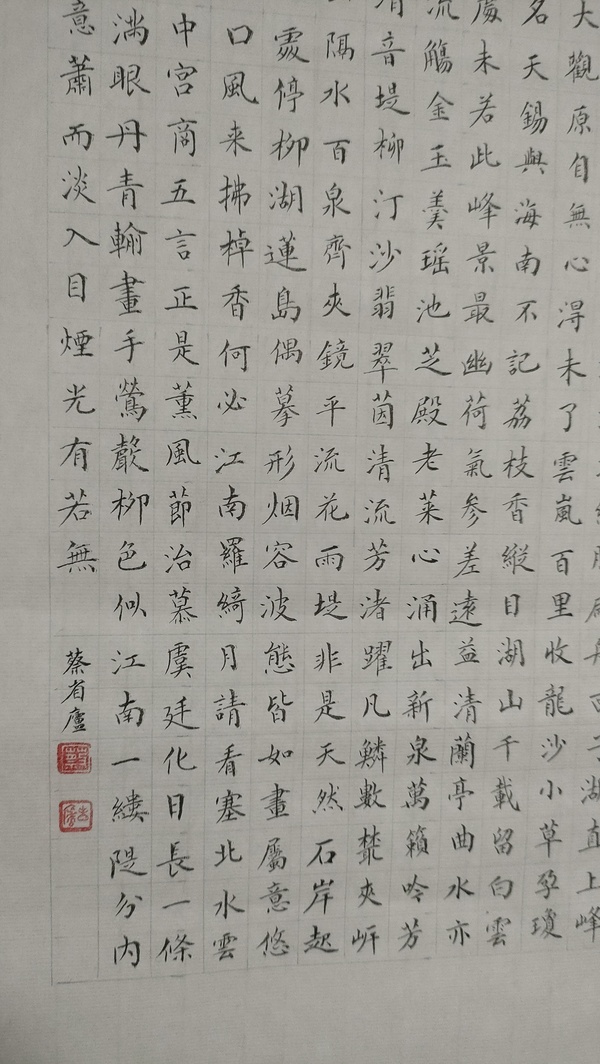 湖直上峰
大觀原自無心得未了雲嵐百里收龍沙小草孕瓊
名天錫與海南不記荔枝香縱目湖山千載留白雲
處未若此峰景最幽荷氣參差遠益清蘭亭曲水亦
流觴金玉羹瑤池芝殿老萊心涌出新泉萬籟吟芳
音堤柳汀沙翡翠茵清流芳渚躍凡鱗數叢夾岍
隔水百泉齊夾鏡平流花雨堤非是天然石岸起
霞停柳湖蓮島偶摹形烟容波態皆如畫屬意悠
口風来拂棹香何必江南羅綺月請看塞北水雲
中宮商五言正是薰風節治慕虞廷化日長一條
滿眼丹青輸畫手鶯聲柳色似江南一縷隄分內
意蕭而淡入目煙光有若無
蔡省廬